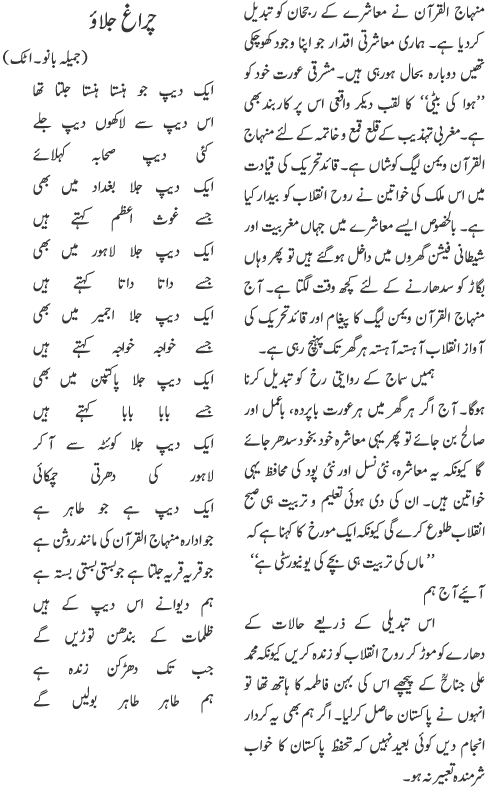 منہاج القرآن نے معاشرے کے رجحان کو تبدیل
کردیا ہے۔ ہماری معاشرتی اقدار جو اپنا وجود کھوچکی
تھیں دوبارہ بحال ہورہی ہیں۔ مشرقی عورت خود کو
’’ہوا کی بیٹی‘‘ کا لقب دیکر واقعی اس پر کاربند بھی
ہے۔ مغربی تہذیب کے قلع قمع و خاتمہ کے لئے منہاج
القرآن ویمن لیگ کوشاں ہے۔ قائد تحریک کی قیادت
میں اس ملک کی خواتین نے روح انقلاب کو بیدار کیا
ہے۔ بالخصوص ایسے معاشرے میں جہاں مغربیت اور
شیطانی فیشن گھروں میں داخل ہوگئے ہیں تو پھر وہاں
بگاڑ کو سدھارنے کے لئے کچھ وقت لگتا ہے۔ آج
منہاج القرآن ویمن لیگ کا پیغام اور قائد تحریک کی
آواز انقلاب آہستہ آہستہ ہر گھر تک پہنچ رہی ہے۔
ہمیں سماج کے روایتی رخ کو تبدیل کرنا
ہوگا۔ آج اگر ہر گھر میں ہر عورت باپردہ، باعمل اور
صالح بن جائے تو پھر یہی معاشرہ خود بخود سدھر جائے
گا کیونکہ یہ معاشرہ، نئی نسل اور نئی پود کی محافظ یہی
خواتین ہیں۔ ان کی دی ہوئی تعلیم و تربیت ہی صبح
انقلاب طلوع کرے گی کیونکہ ایک مورخ کا کہنا ہے کہ
’’ماں کی تربیت ہی بچے کی یونیورسٹی ہے‘‘
آیئے آج ہم
اس تبدیلی کے ذریعے حالات کے
دھارے کو موڑ کر روح انقلاب کو زندہ کریں کیونکہ محمد
علی جناحؒ کے پیچھے اس کی بہن فاطمہ کا ہاتھ تھا تو
انہوں نے پاکستان حاصل کرلیا۔ اگر ہم بھی یہ کردار
انجام دیں کوئی بعید نہیں کہ تحفظ پاکستان کا خواب
شرمندہ تعبیر نہ ہو۔
چراغ جلاؤ
(جمیلہ بانو۔ اٹک)
ایک دیپ جو ہنستا ہنستا جلتا تھا
اس دیپ سے لاکھوں دیپ جلے
کئی دیپ صحابہ کہلائے
ایک دیپ جلا بغداد میں بھی
جسے غوث اعظم کہتے ہیں
ایک دیپ جلا لاہور میں بھی
جسے داتا داتا کہتے ہیں
ایک دیپ جلا اجمیر میں بھی
جسے خواجہ خواجہ کہتے ہیں
ایک دیپ جلا پاکپتن میں بھی
جسے بابا بابا کہتے ہیں
ایک دیپ جلا کوئٹہ سے آکر
لاہور کی دھرتی چمکائی
ایک دیپ ہے جو طاہر ہے
جو ادارہ منہاج القرآن کی مانند روشن ہے
جو قریہ قریہ جلتا ہے جو بستی بستی بستہ ہے
ہم دیوانے اس دیپ کے ہیں
ظلمات کے بندھن توڑیں گے
جب تک دھڑکن زندہ ہے
ہم طاہر طاہر بولیں گے